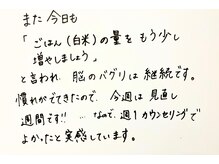 また 今日も
「ごはん(白米)の量を もう少し
増やしましょう」
と言われ 脳のバグりは 継続です。
慣れがでてきたので、今週は見直し
週間です!! …なので、週1カウンセリングで
よかったと実感しています。